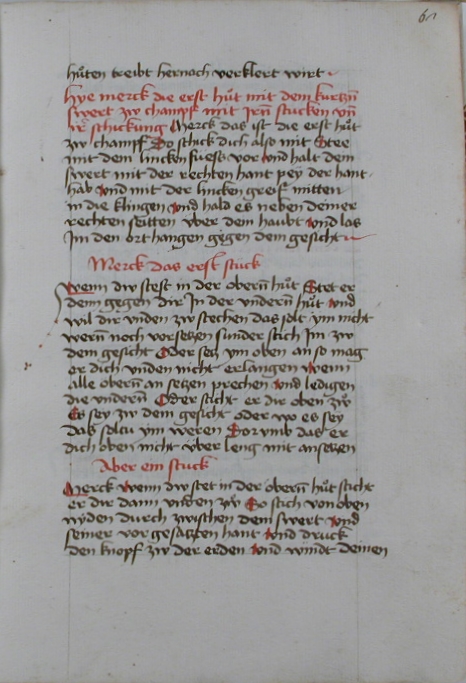 61
hůten treibt hernoch verklert wirt
Hye merck die erst hůt mit dem kurtzn̄
swert zw champf mit irn̄ stucken vn̄
ir̄ schickung Merck das ist die erst hůt
zw champf So schick dich also mit Stee
mit dem lincken fuess vor vnd halt dein
swert mit der rechten hant pey der hant
hab vnd mit der lincken greif mitten
in die klingen vnd hald es neben deiner
rechten seitten vber dem haubt vnd las
Im den ort hangen gegen dem gesicht
Merck das erst stuck
Wenn dw stest in der obern̄ hůt Stet er
denn gegen dir In der vndern̄ hůt vnd
wil dir vnden zw stechen das solt ym nicht
wern̄ noch versetzen sunder stich Im zw
dem gesicht Oder setz ym oben an so mag
er dich vnden nicht erlangen Wenn
alle obern̄ an setzen prechen vnd ledigen
die vndern̄ Oder sticht er dir oben zw
Es sey zw dem gesicht oder wo es sey
das soltu ym weren Dorymb das er
dich oben nicht vber leng mit ansetzen
Aber ein stuck
Merck Wenn dw stet in der obern̄ hůt sticht
er dir dann vnden zw So stich von oben
nyden durch zwischen dem swert vnd
seiner vor gesatzten hant vnd druck
den knopf zw der erden vnd windt deinen